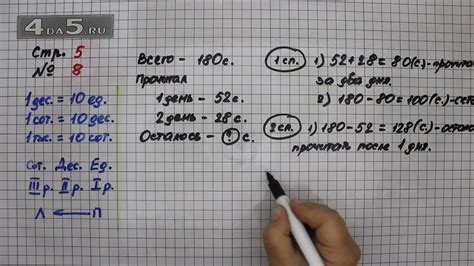 4DA5.RU
Стр. 5
№ 8
1 дес. = 10 ед.
1 сот. = 10 дес.
1 тыс. = 10 сот.
Сот. Дес. Ед.
III р. II р. I р.
Л ← П
Всего – 180 с.
Прочитал
1 день – 52 с.
2 день – 28 с.
Осталось – ? с.
1 сп. 1) 52+28 = 80 (с.)-прочитал
за два дня.
2) 180-80 = 100 (с.)-ост
2 сп. 1) 180-52 = 128 (с.)-осталось
прочитать после 1 дня.